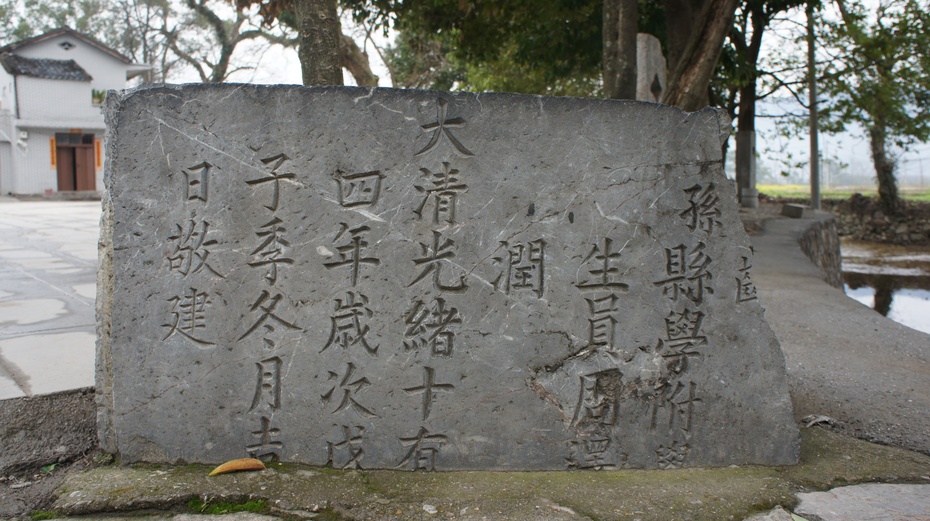 孫縣學附
生員周
潤
大清光緒十有
四年歲次戊
子季冬月吉
日敬建